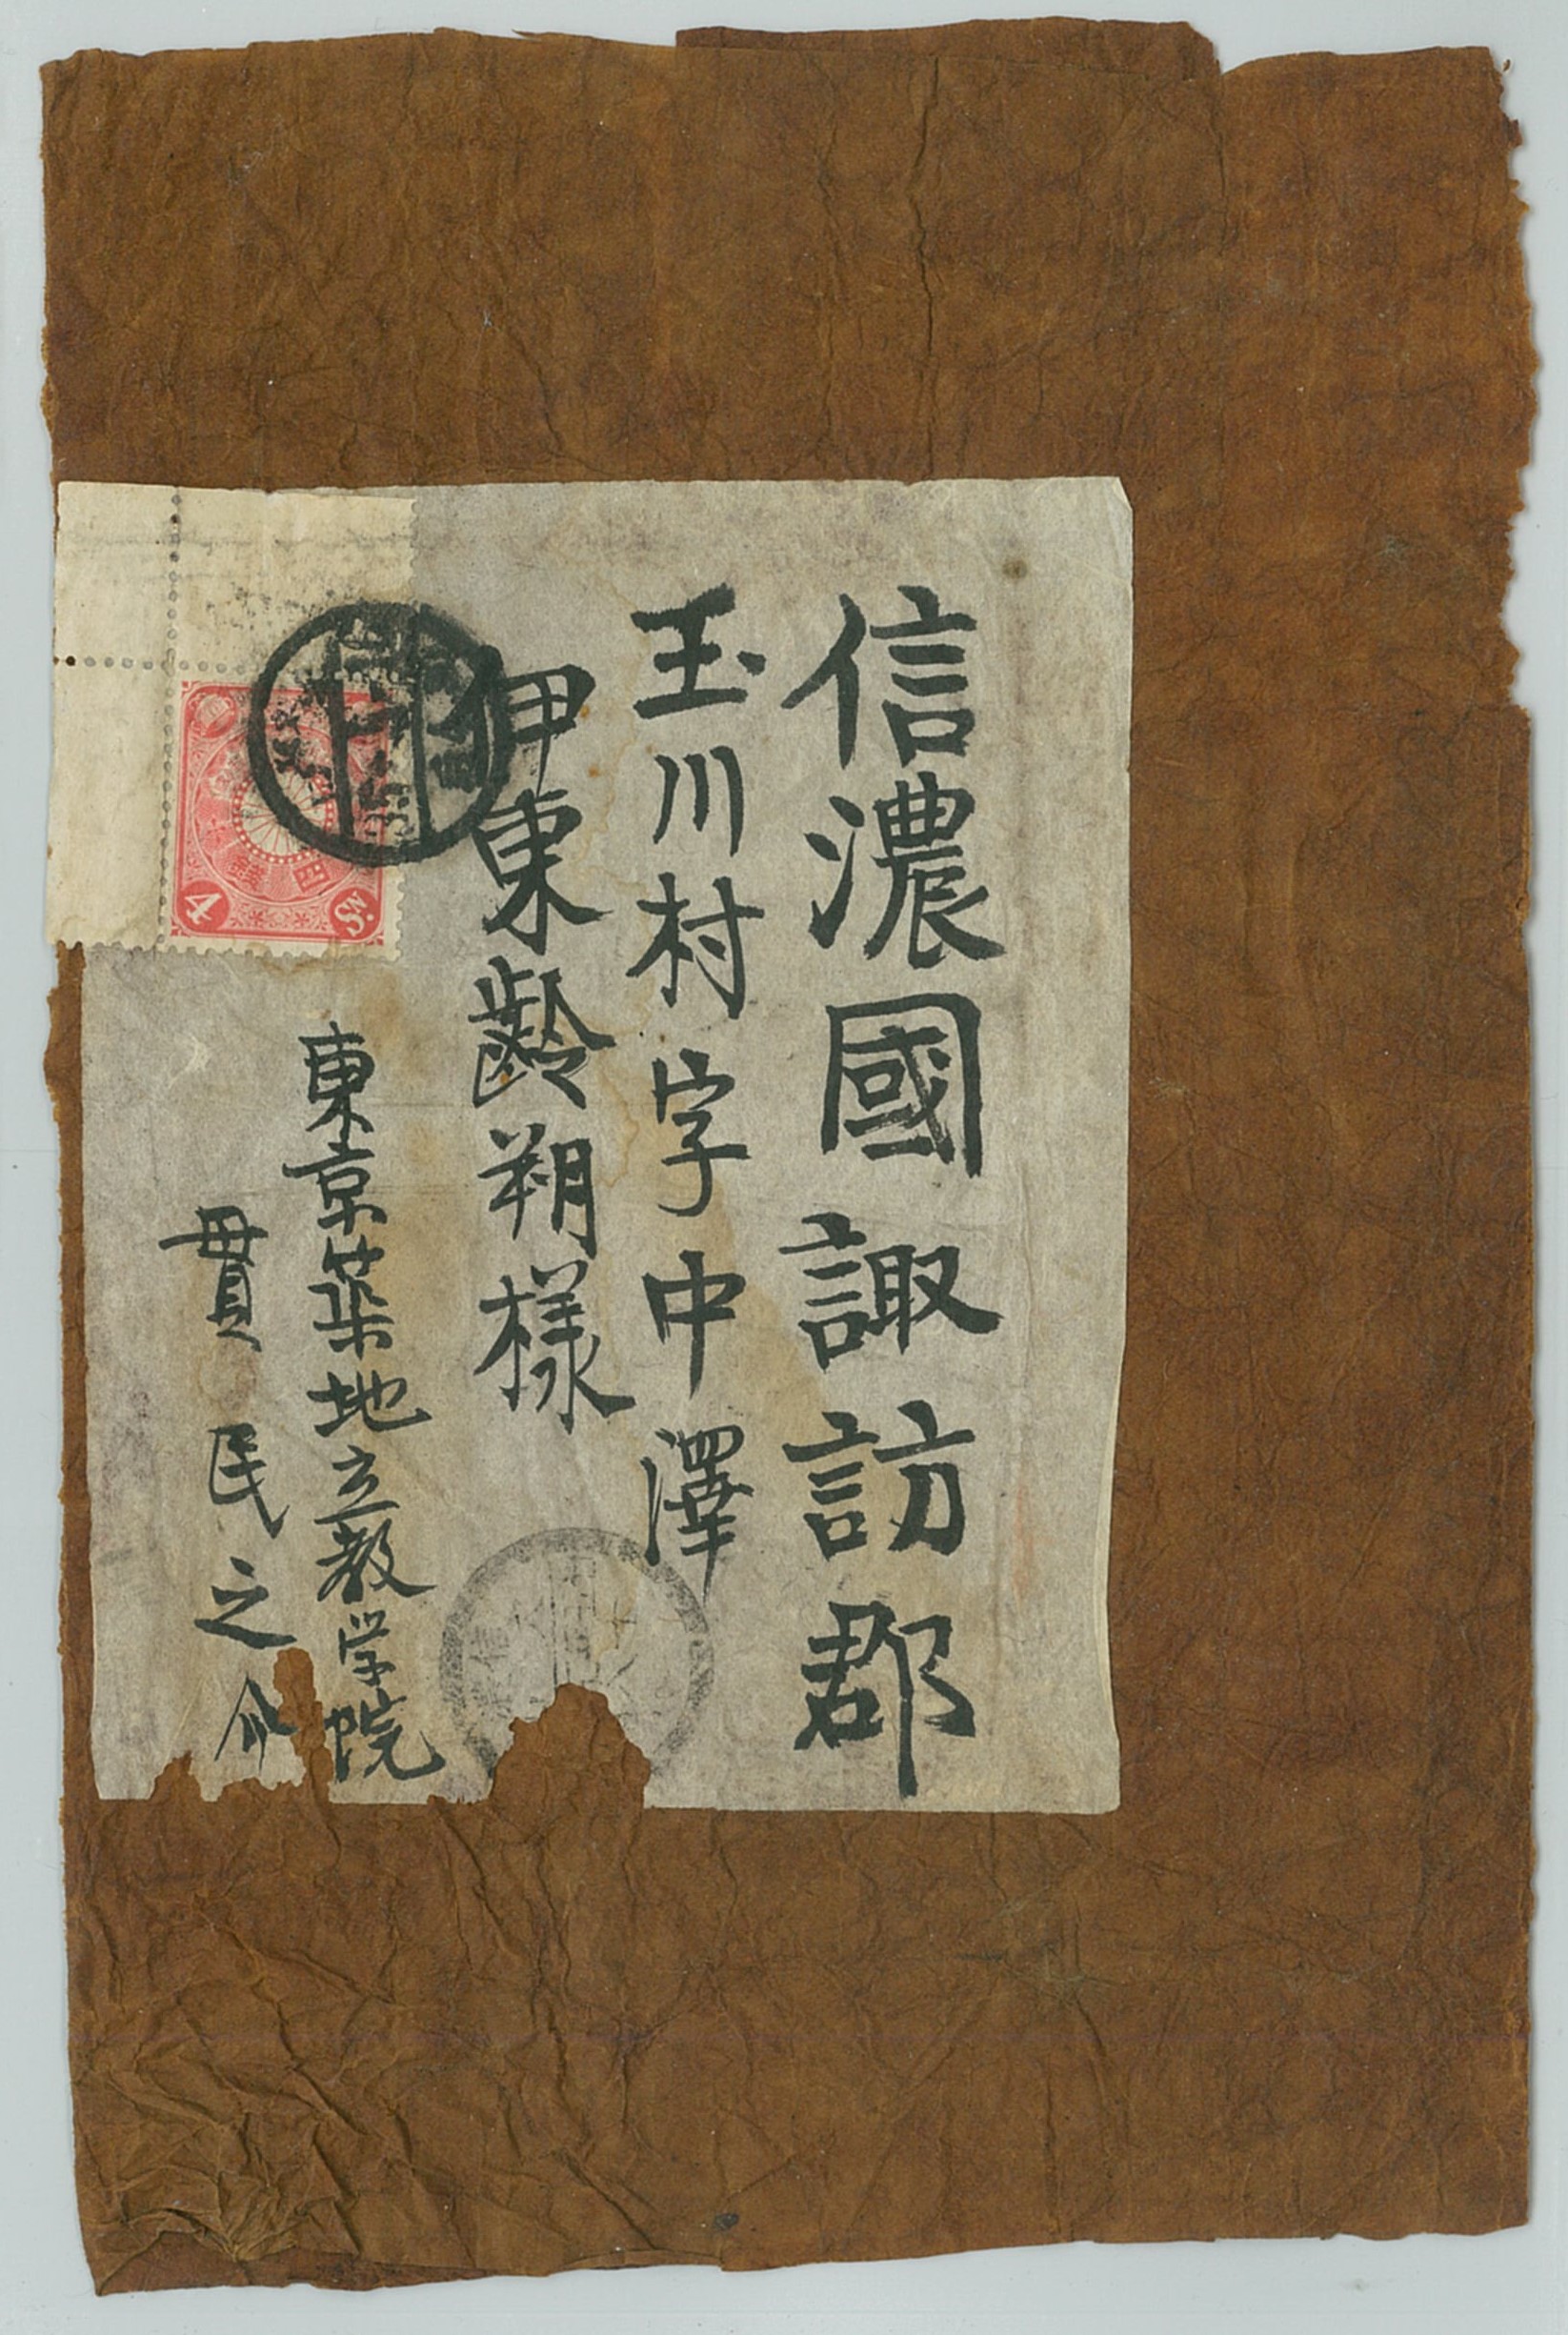 信濃國諏訪郡
玉川村字中澤
伊東齡朔様
東京築地立教学院
貫民之介
4
Sn.